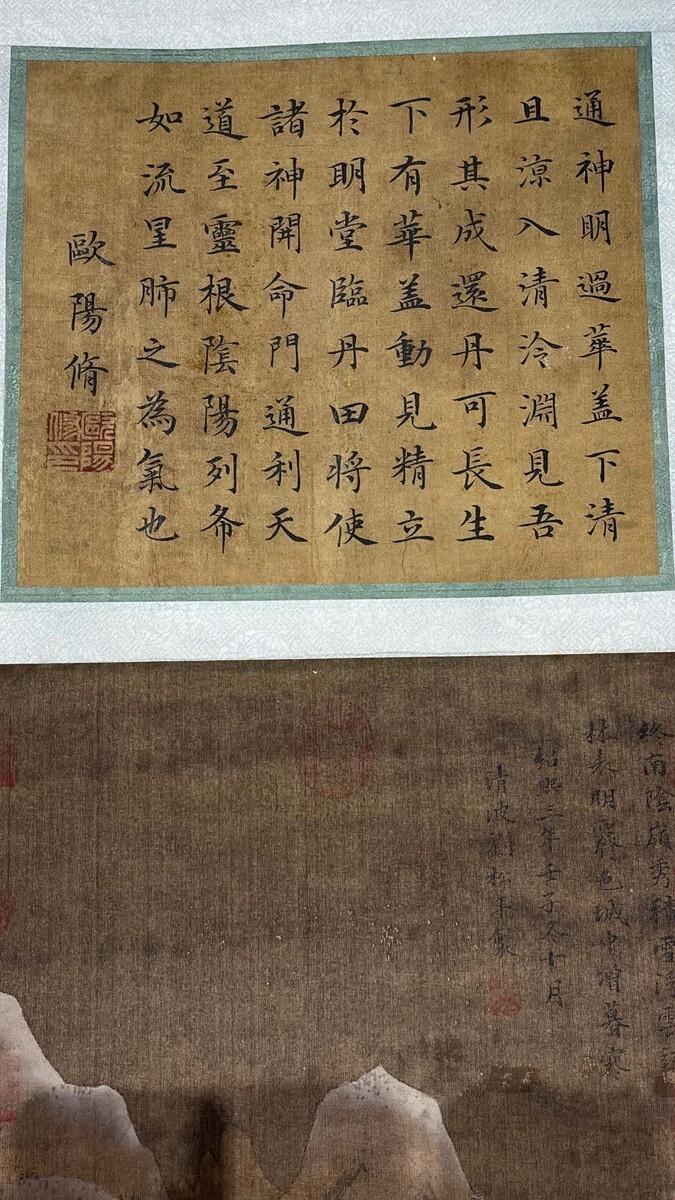 通神明過華盖下清
且涼入清泠淵見吾
形其成還丹可長生
下有華盖動見精立
於明堂臨丹田將使
諸神開命門通利天
道至靈根陰陽列布
如流星肺之為氣也
歐陽脩
歐陽修印
終南陰嶺秀積雪浮雲
林表明霽色城中增暮寒
紹熙三年壬子冬十月
清波劉松年製